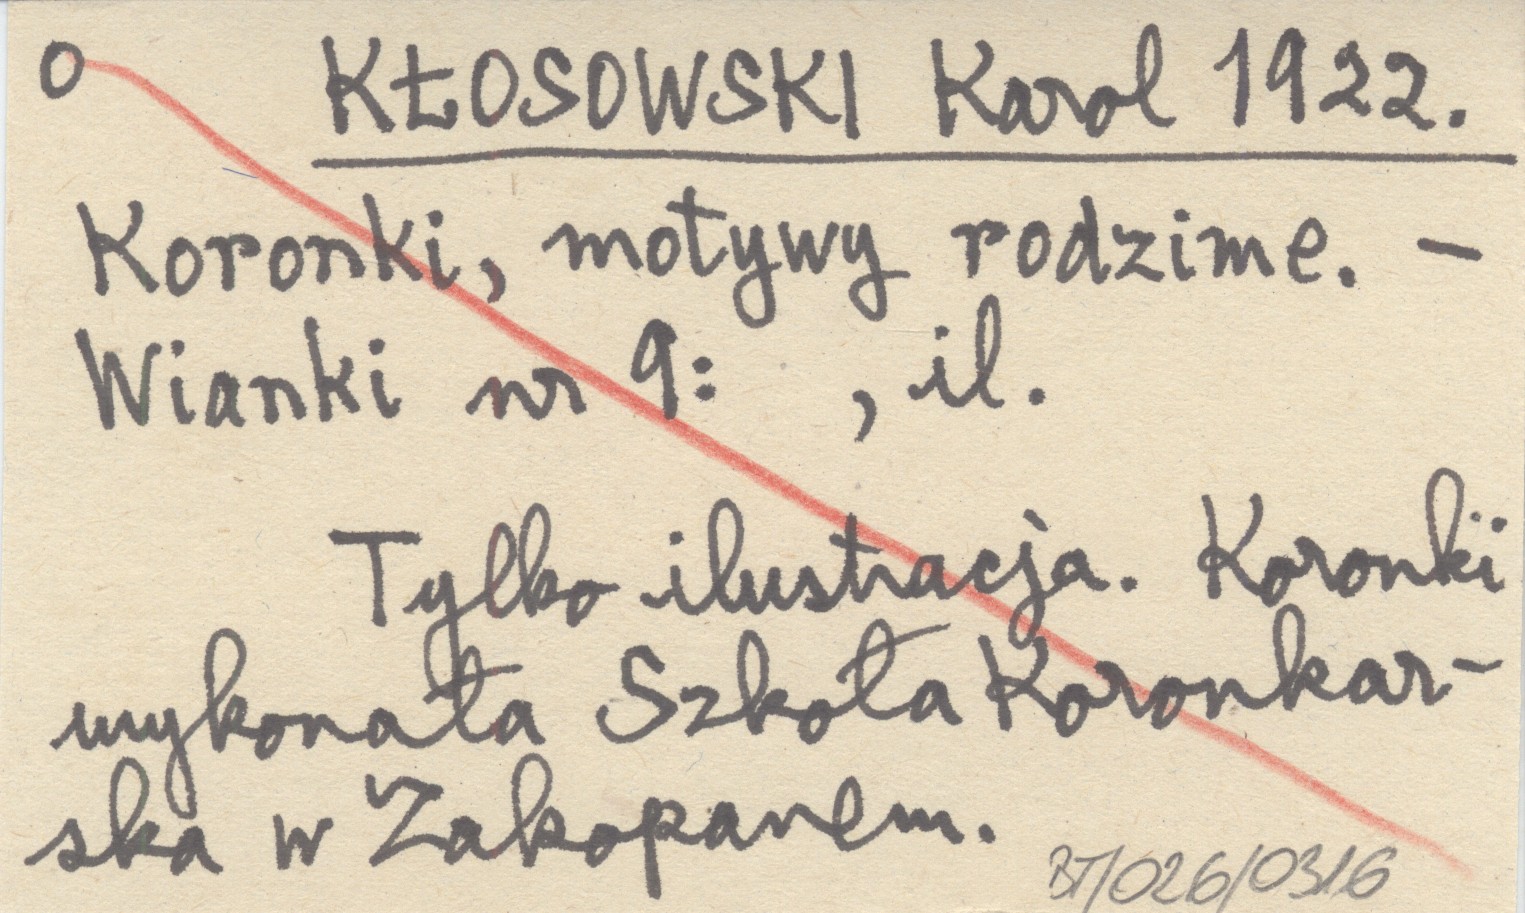 O KŁOSOWSKI Karol 1922.
Koronki, motywy rodzime. –
Wianki nr 9: , il.
Tylko ilustracja. Koronki
wykonała Szkoła Koronkar-
ska w Zakopanem.
BT/026/0316